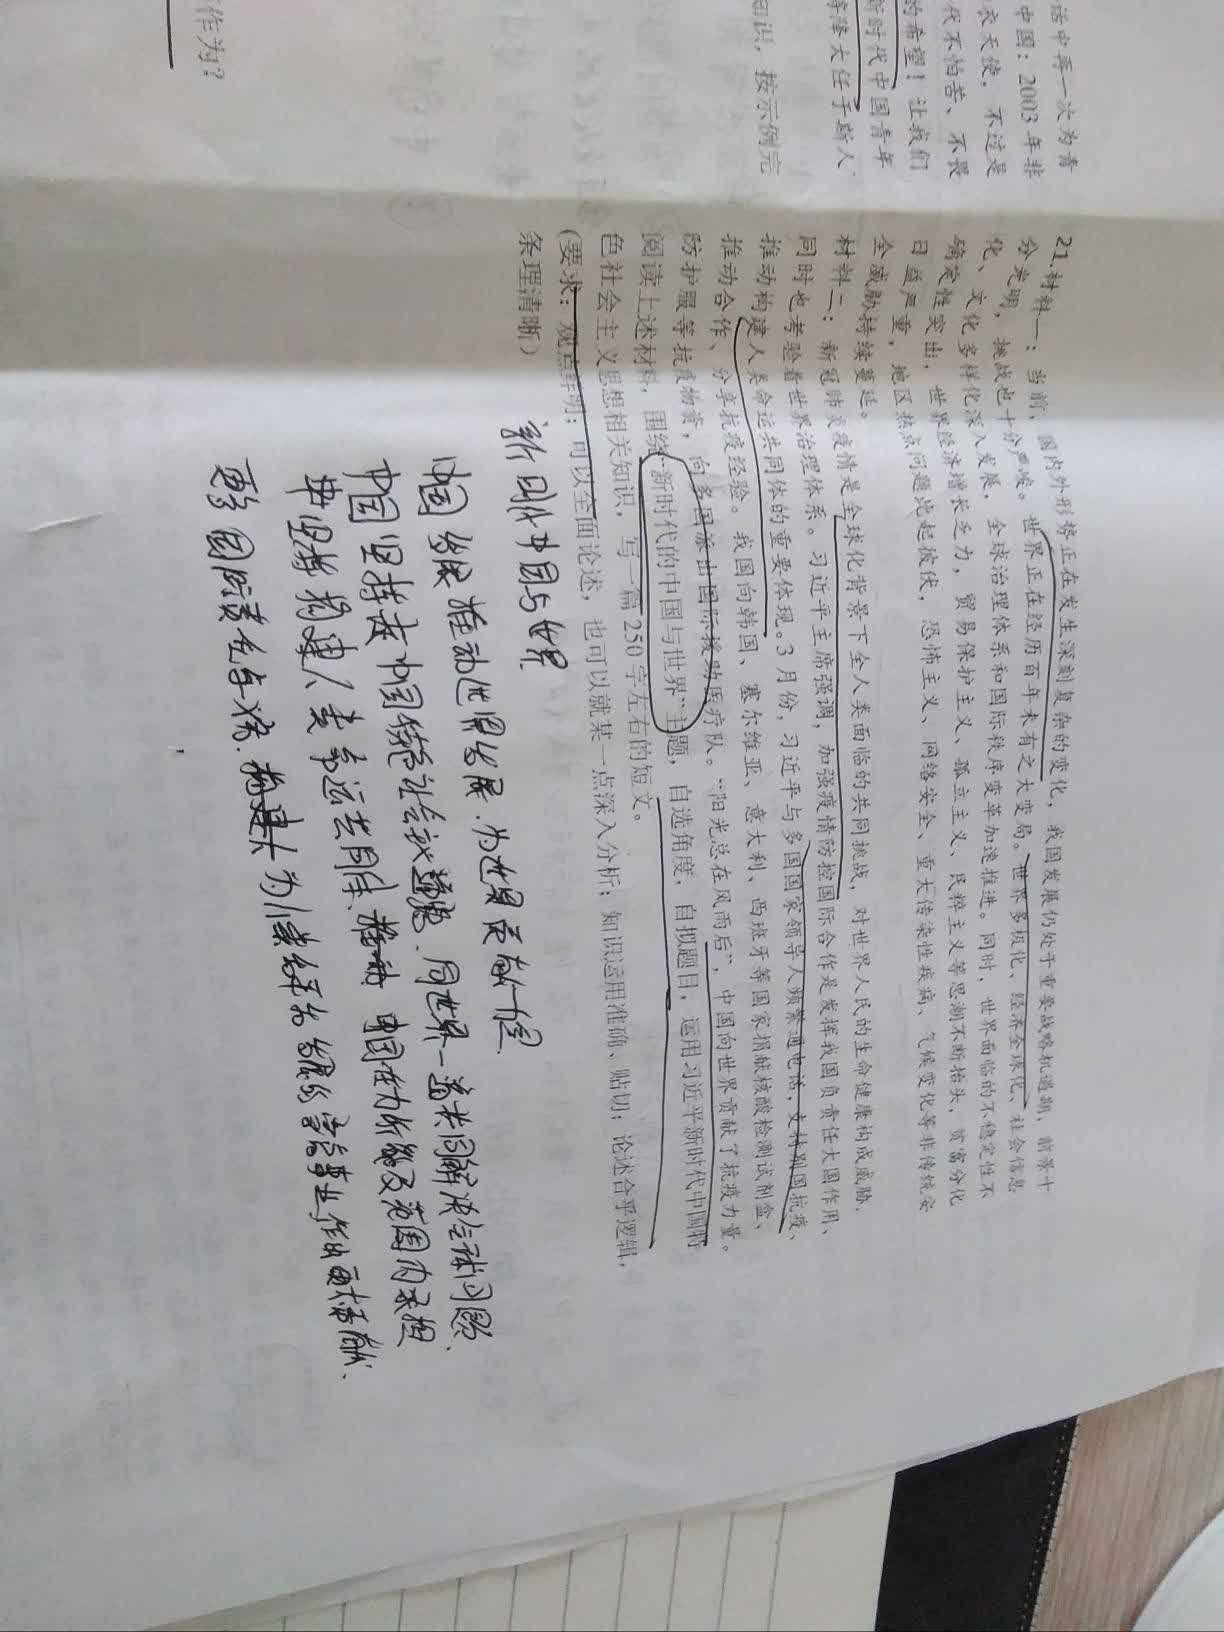 话中再一次为青
中国：2003年非
衣天使，不过是
代不怕苦、不畏
的希望！让我们
新时代中国青年
大任于斯人
知识，按示例完
作为？
21.材料一：当前，国内外形势正在发生深刻复杂的变化，我国发展仍处于重要战略机遇期，前景十
分光明，挑战也十分严峻。世界正在经历百年未有之大变局。世界多极化、经济全球化、社会信息
化、文化多样化深入发展，全球治理体系和国际秩序变革加速推进。同时，世界面临的不稳定性不
确定性突出，世界经济增长乏力，贸易保护主义、孤立主义、民粹主义等思潮不断抬头，贫富分化
日益严重，地区热点问题此起彼伏，恐怖主义、网络安全、重大传染性疾病、气候变化等非传统安
全威胁持续蔓延。
材料二：新冠肺炎疫情是全球化背景下全人类面临的共同挑战，对世界人民的生命健康构成威胁，
同时也考验着世界治理体系。习近平主席强调，加强疫情防控国际合作是发挥我国负责任大国作用、
推动构建人类命运共同体的重要体现。3月份，习近平与多国国家领导人频繁通电话，支持别国抗疫、
推动合作、分享抗疫经验。我国向韩国、塞尔维亚、意大利、西班牙等国家捐献核酸检测试剂盒、
防护服等抗疫物资，向多国派出国际援助医疗队。“阳光总在风雨后”，中国向世界贡献了抗疫力量。
阅读上述材料，围绕“新时代的中国与世界”主题，自选角度，自拟题目，运用习近平新时代中国特
色社会主义思想相关知识，写一篇250字左右的短文。
（要求：观点鲜明；可以全面论述，也可以就某一点深入分析；知识运用准确、贴切；论述合乎逻辑，
条理清晰）
新时代中国与世界
中国 推动世界发展，为世界贡献力量
中国坚持走中国特色社会主义道路，同世界一道共同解决全球问题，
坚持构建人类命运共同体，中国在力所能及范围内承担
更多国际责任与义务，为人类和平与发展的崇高事业作出更大贡献、